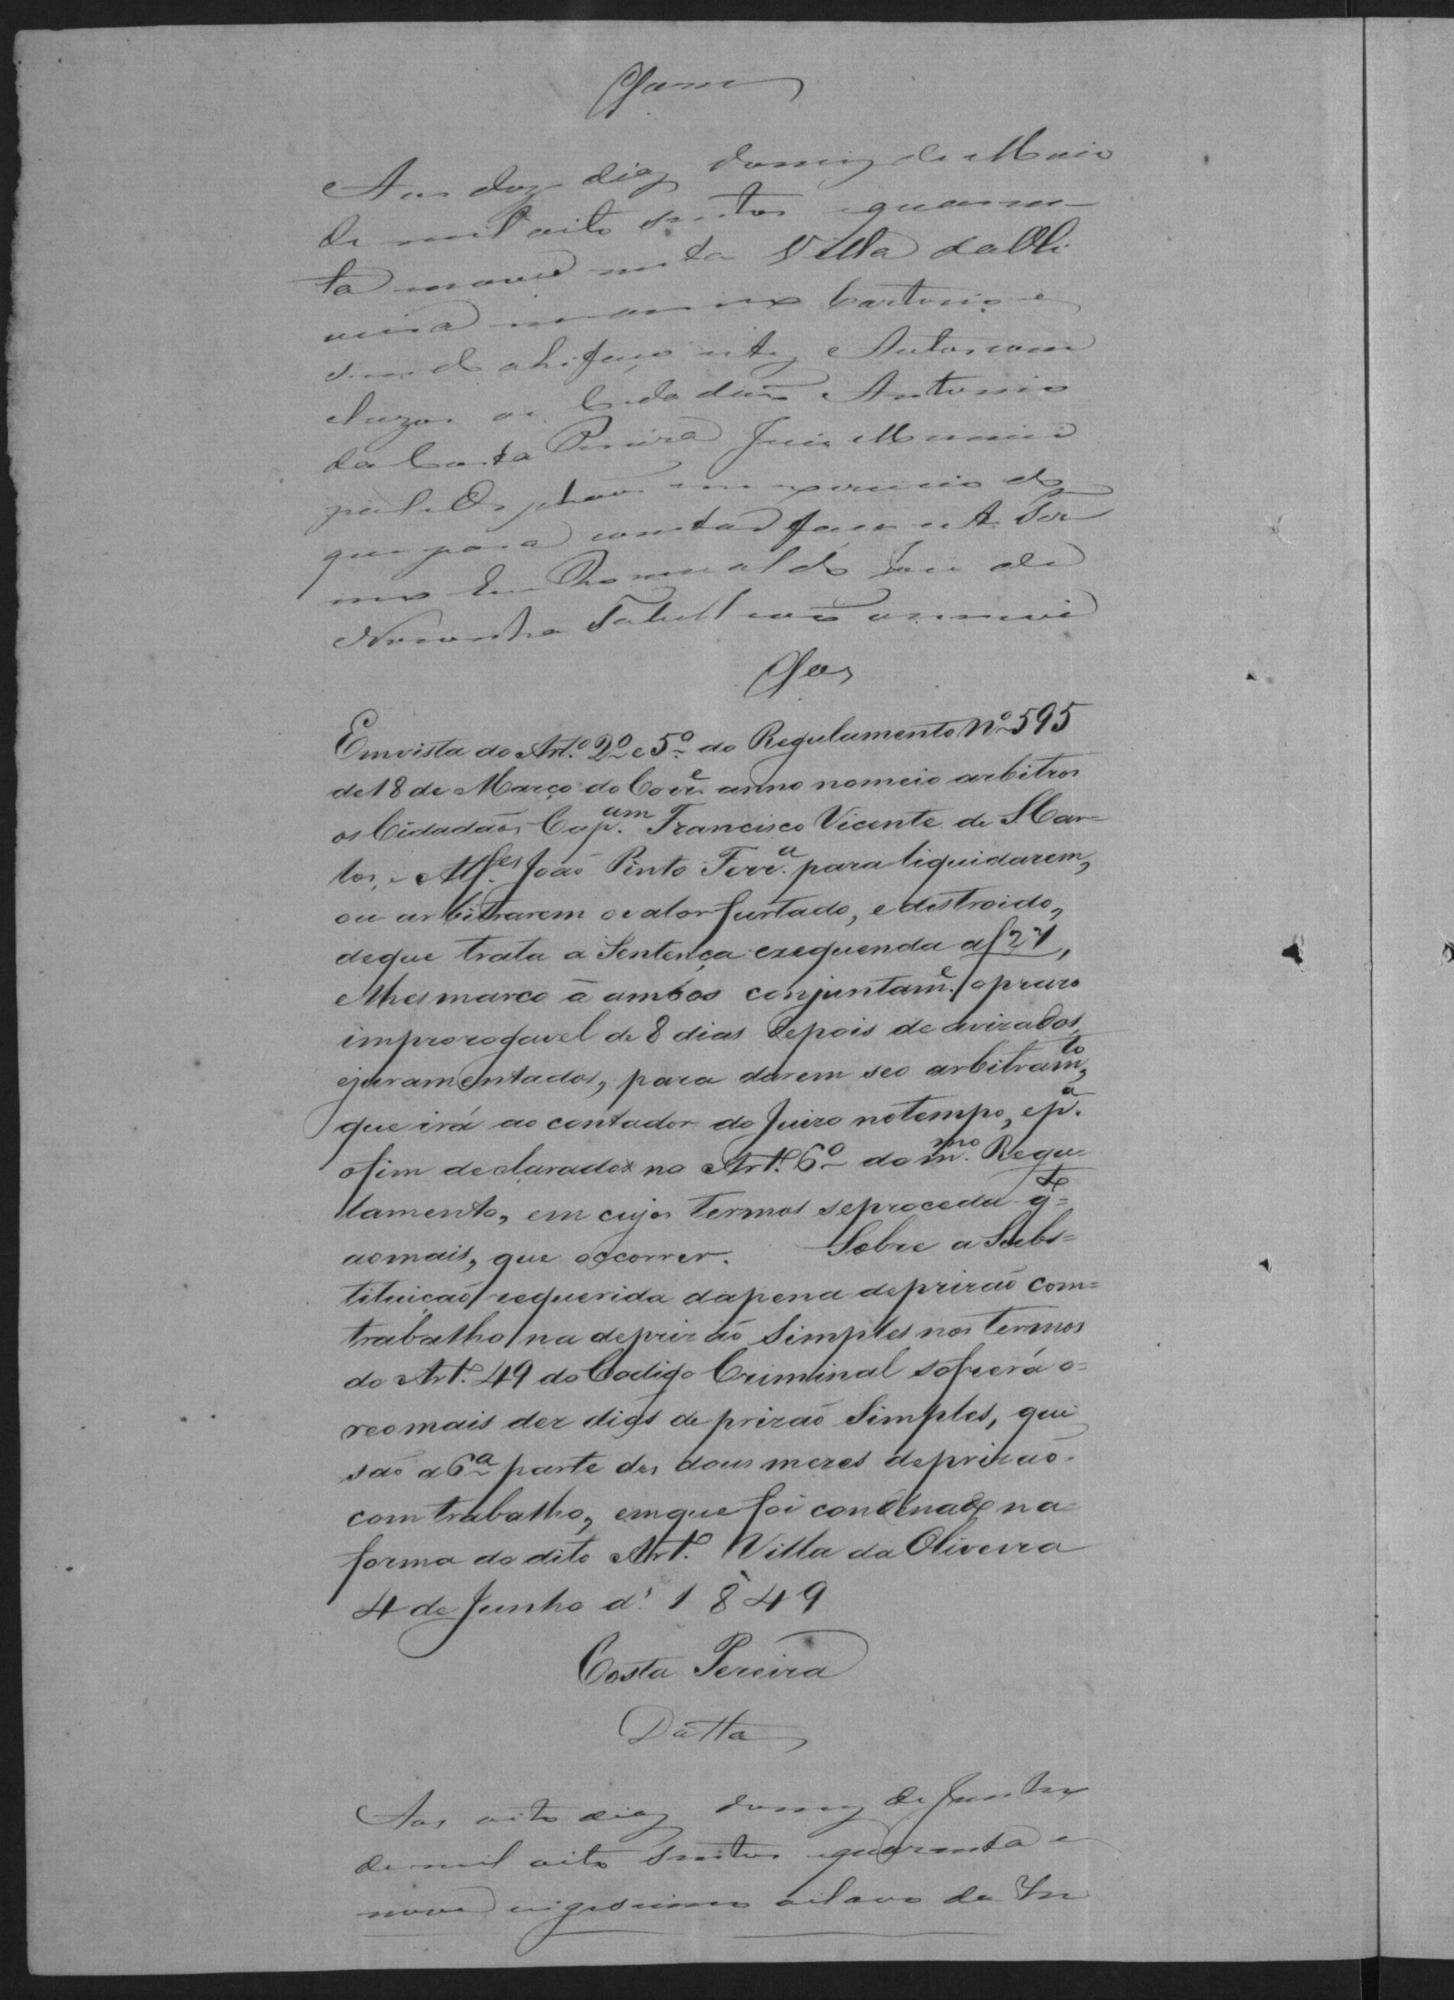 Aos doze dias do mez de Maio
de mil oito centos quaren
ta nove nesta Villa da Oli
veira em meu Cartorio e
sendo ahi faço estes Autos con
cluzos ao Cidadão Antonio
da Costa Pereira Juis Munici
pal e Orphaõs em exercicio do
que para constar faço este Ter
mo Eu Romualdo Jose de
Noronha Tabelliaõ o escrevi
Clos
Em vista do Art.º 2º e 5º do Regulamento Nº 595
de 18 de Março do Corr.e anno nomeio arbitros
os Cidadãos Cap.am Francisco Vicente de S. Car-
los, e Alf.es João Pinto Ferr.a para liquidarem,
ou arbitrarem o valor furtado, e destroido,
de que trata a Sentença exequenda a f 21,
e lhes marco á ambos conjuntam.e o prazo
improrogavel de 8 dias depois de avizados,
e juramentados, para darem seo arbitram.to,
que irá ao contador do Juizo no tempo, e p.a
o fim declarados no Art.º 6º do m.mo Regu-
lamento, em cujos termos se proceda q.to
ao mais, que occorrer. Sobre a Subs=
tituição requerida da pena de prizão com=
trabalho na de prizão Simples nos termos
do Art.º 49 do Codigo Criminal sofrerá o=
reo mais dez dias de prizão Simples, que
são a 6ª parte dos dous mezes de prizão
com trabalho, em que foi condenado na
forma do dito Art.º Villa da Oliveira
4 de Junho d' 1849
Costa Pereira
Datta
Aos oito dias do mez de Junho
de mil oito centos quarenta e
nove vigesimo oitavo da In